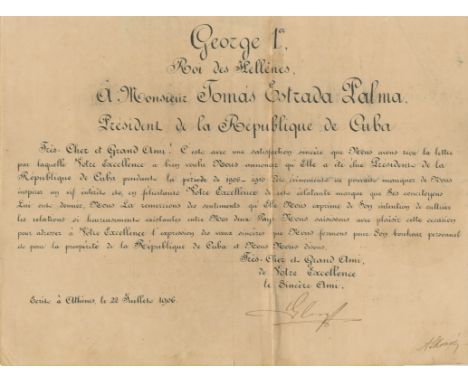 George 1er.
Roi des Hellènes.
À Monsieur Tomás Estrada Palma.
Président de la République de Cuba
Très-Cher et Grand Ami! C'est avec une satisfaction sincère que Nous avons reçu la lettre
par laquelle Votre Excellence a bien voulu Nous annoncer qu'Elle a été élue Présidente de la
République de Cuba pendant la période de 1906-1910. Cet évènement ne pouvait manquer de Nous
inspirer un vif intérêt et, en félicitant Votre Excellence de cette éclatante marque que Ses concitoyens
Lui ont donnée, Nous La remercions des sentiments qu'Elle Nous exprime de Son intention de cultiver
les relations si heureusement existantes entre Nos deux Pays. Nous saisissons avec plaisir cette occasion
pour adresser à Votre Excellence l'expression des vœux sincères que Nous formons pour Son bonheur personnel
et pour la prospérité de la République de Cuba et Nous Nous disons,
Très-Cher et Grand Ami,
de Votre Excellence
le Sincère Ami.
Ecrit à Athènes, le 22 Juillet 1906.